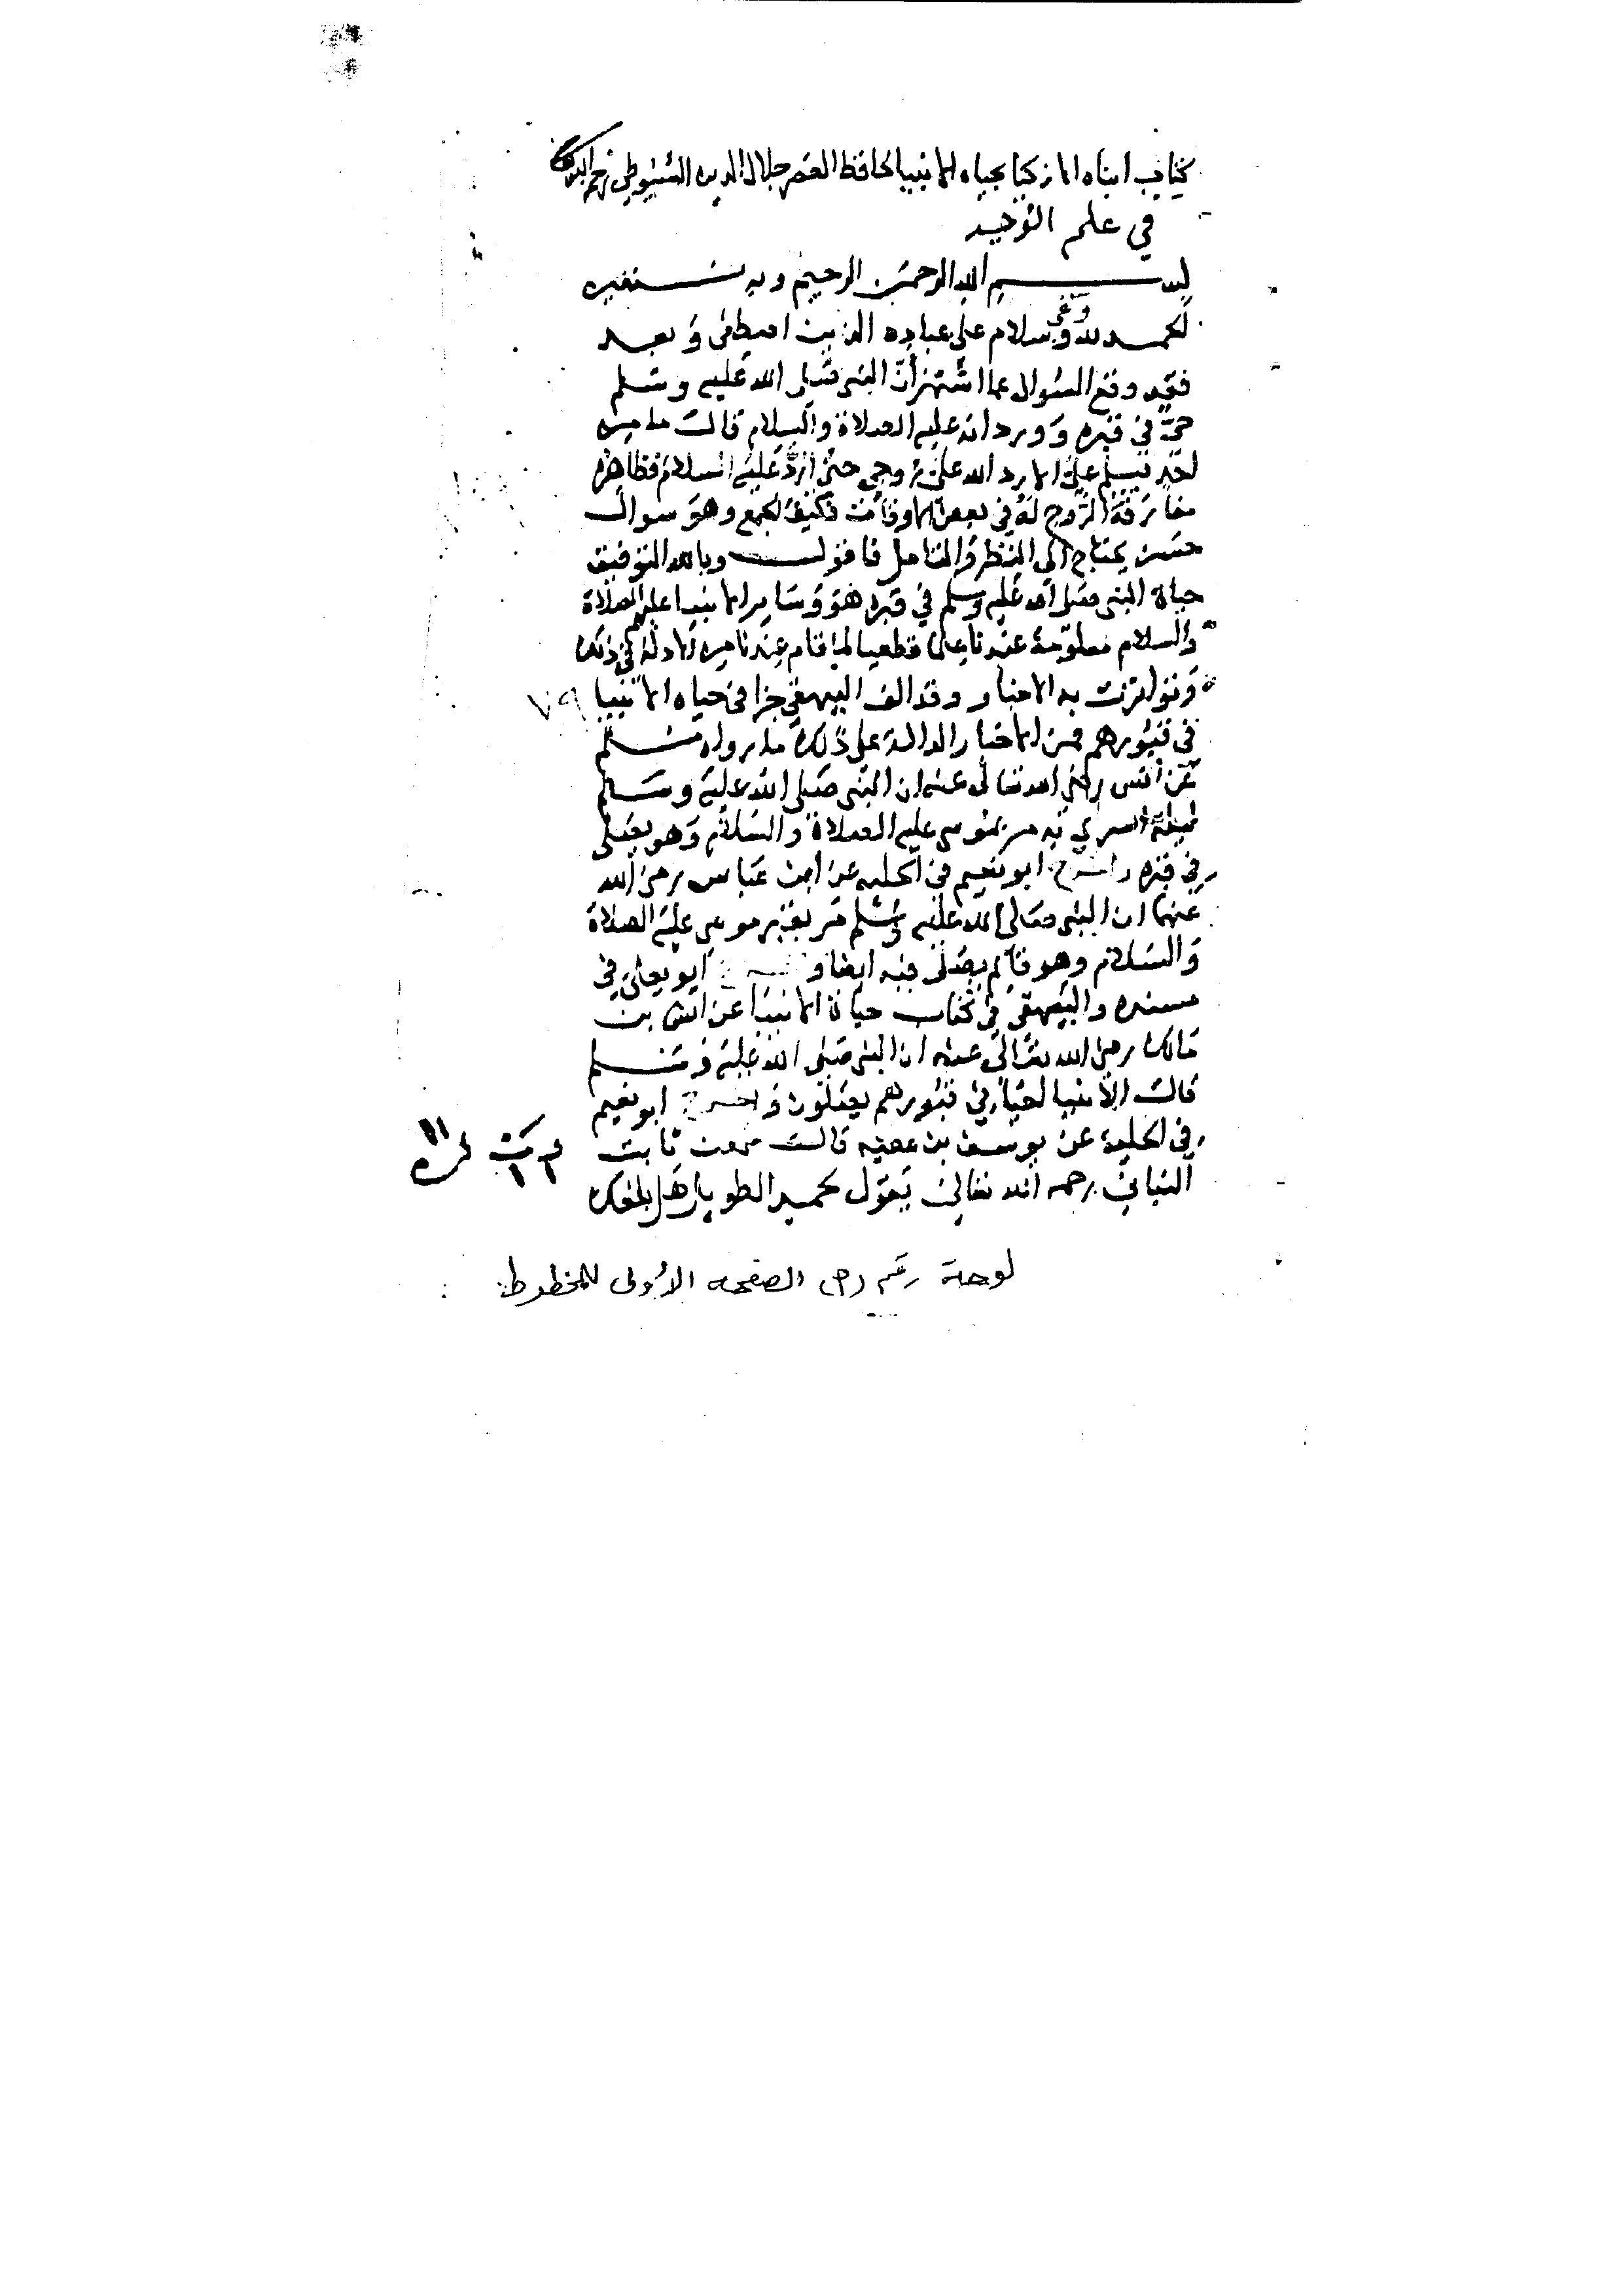 كتاب انباه الازكيا بحياه الانبيا لحافظ العصر جلال الدين السيوطي رحمه الله
في علم التوحيد
بسم الله الرحمن الرحيم وبه نستعين
الحمد لله وكفى وسلام على عباده الذين اصطفى وبعد
فقد وقع السوال عما اشتهر أن النبي صلى الله عليه وسلم
حيّ في قبره وورد انه عليه الصلاة والسلام قال ما من
احد يسلم عليّ الا رد الله عليّ روحي حتى أردّ عليه السلام فظاهره
مفارقة الرّوح له في بعض الاوقات فكيف الجمع وهو سوال
حسن يحتاج الى النظر والتامل فاقول وبالله التوفيق
حياة النبي صلى الله عليه وسلم في قبره هو وساير الانبيا عليهم الصلاة
والسلام معلومة عندنا علما قطعيا لما قام عندنا من الادلة في ذلك
وتواترت به الاخبار وقد الف البيهقي جزا في حياه الانبيا
في قبورهم فمن الاخبار الدالة على ذلك ما رواه مسلم
عن أنس رضي الله تعالى عنه ان النبي صلى الله عليه وسلم
ليلة اسري به مر بموسى عليه الصلاة والسلام وهو يصلي
في قبره واخرج ابو نعيم في الحليه عن ابن عباس رضي الله
عنهما ان النبي صلى الله عليه وسلم مر بقبر موسى عليه الصلاة
والسلام وهو قايم يصلى فيه ايضا واخرج ابو يعلى في
مسنده والبيهقي في كتاب حياة الانبيا عن انس بن
مالك رضي الله تعالى عنه ان النبي صلى الله عليه وسلم
قال الأنبيا احيا في قبورهم يصلون واخرج ابو نعيم
في الحلية عن يوسف بن عطيه قال سمعت ثابت
البناني رحمه الله تعالى يقول لحميد الطويل هل بلغك
٧٩
لوحة رقم (٣) الصفحه الأولى للمخطوط